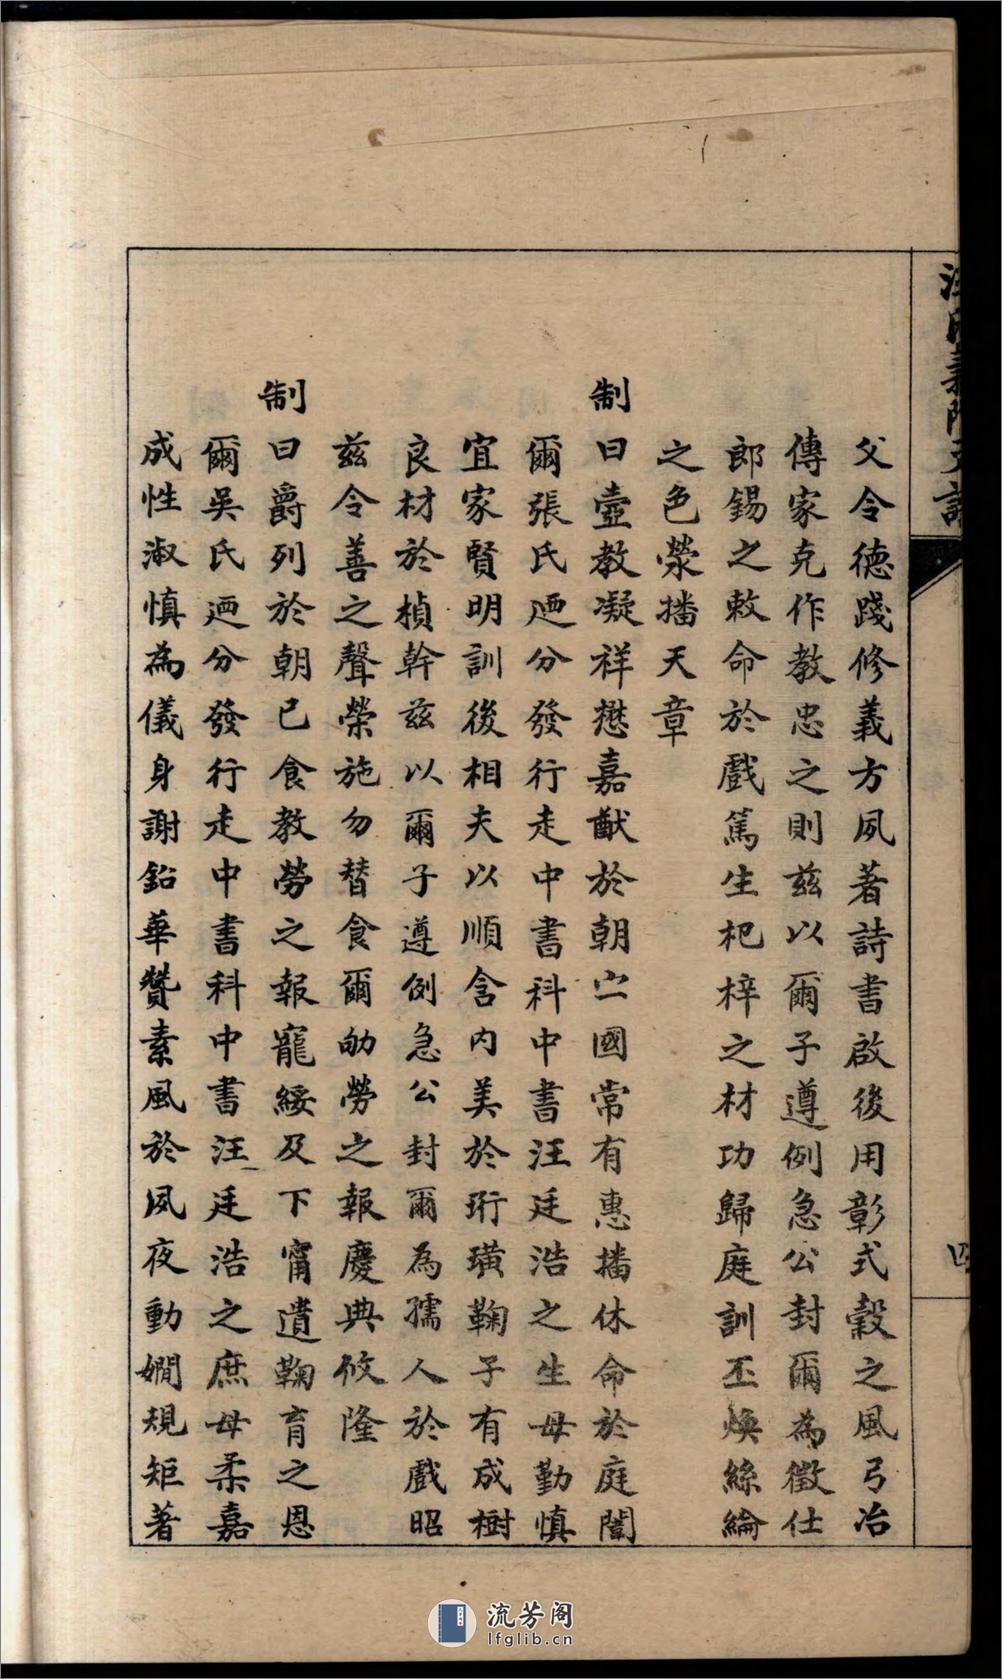 父令德踐修義方夙著詩書啟後用彰式穀之風弓冶
傳家克作教忠之則茲以爾子遵例急公封爾為徵仕
郎錫之敕命於戲篤生杞梓之材功歸庭訓丕煥絲綸
之色榮播天章
制曰壼教凝祥懋嘉猷於朝宁國常有惠播休命於庭闈
爾張氏迺分發行走中書科中書汪廷浩之生母勤慎
宜家賢明訓後相夫以順含內美於珩璜鞠子有成樹
良材於楨幹茲以爾子遵例急公封爾為孺人於戲昭
茲令善之聲榮施勿替食爾劬勞之報慶典攸隆
制曰爵列於朝已食教勞之報寵綏及下甯遺鞠育之恩
爾吳氏迺分發行走中書科中書汪廷浩之庶母柔嘉
成性淑慎為儀身謝鉛華贊素風於夙夜動嫺規矩著
四
流芳阁
lfglib.cn